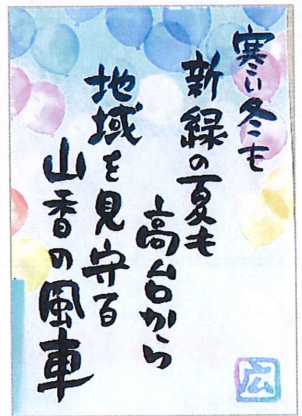 寒い冬も
新緑の夏も
高台から
地域を見守る
山香の風車
広